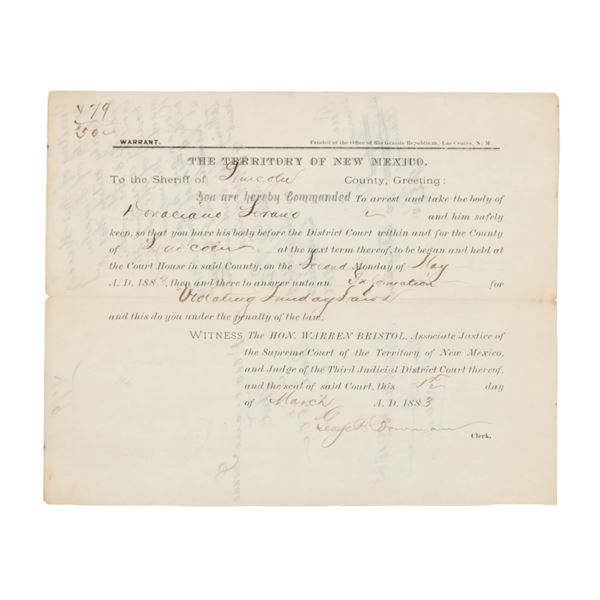 479
WARRANT. Printed at the Office of Rio Grande Republican, Las Cruces, N. M.
THE TERRITORY OF NEW MEXICO.
To the Sheriff of Lincoln County, Greeting:
You are hereby Commanded To arrest and take the body of
Donaciano Serano and him safely
keep, so that you have his body before the District Court within and for the County
of Lincoln at the next term thereof, to be begun and held at
the Court House in said County, on the Second Monday of May
A. D. 1883, then and there to answer unto an Information for
Violating Sunday Laws
and this do you under the penalty of the law.
WITNESS The HON. WARREN BRISTOL, Associate Justice of
the Supreme Court of the Territory of New Mexico,
and Judge of the Third Judicial District Court thereof,
and the seal of said Court, this 1st day
of March A. D. 1883
Geo. R. Bowman
Clerk.